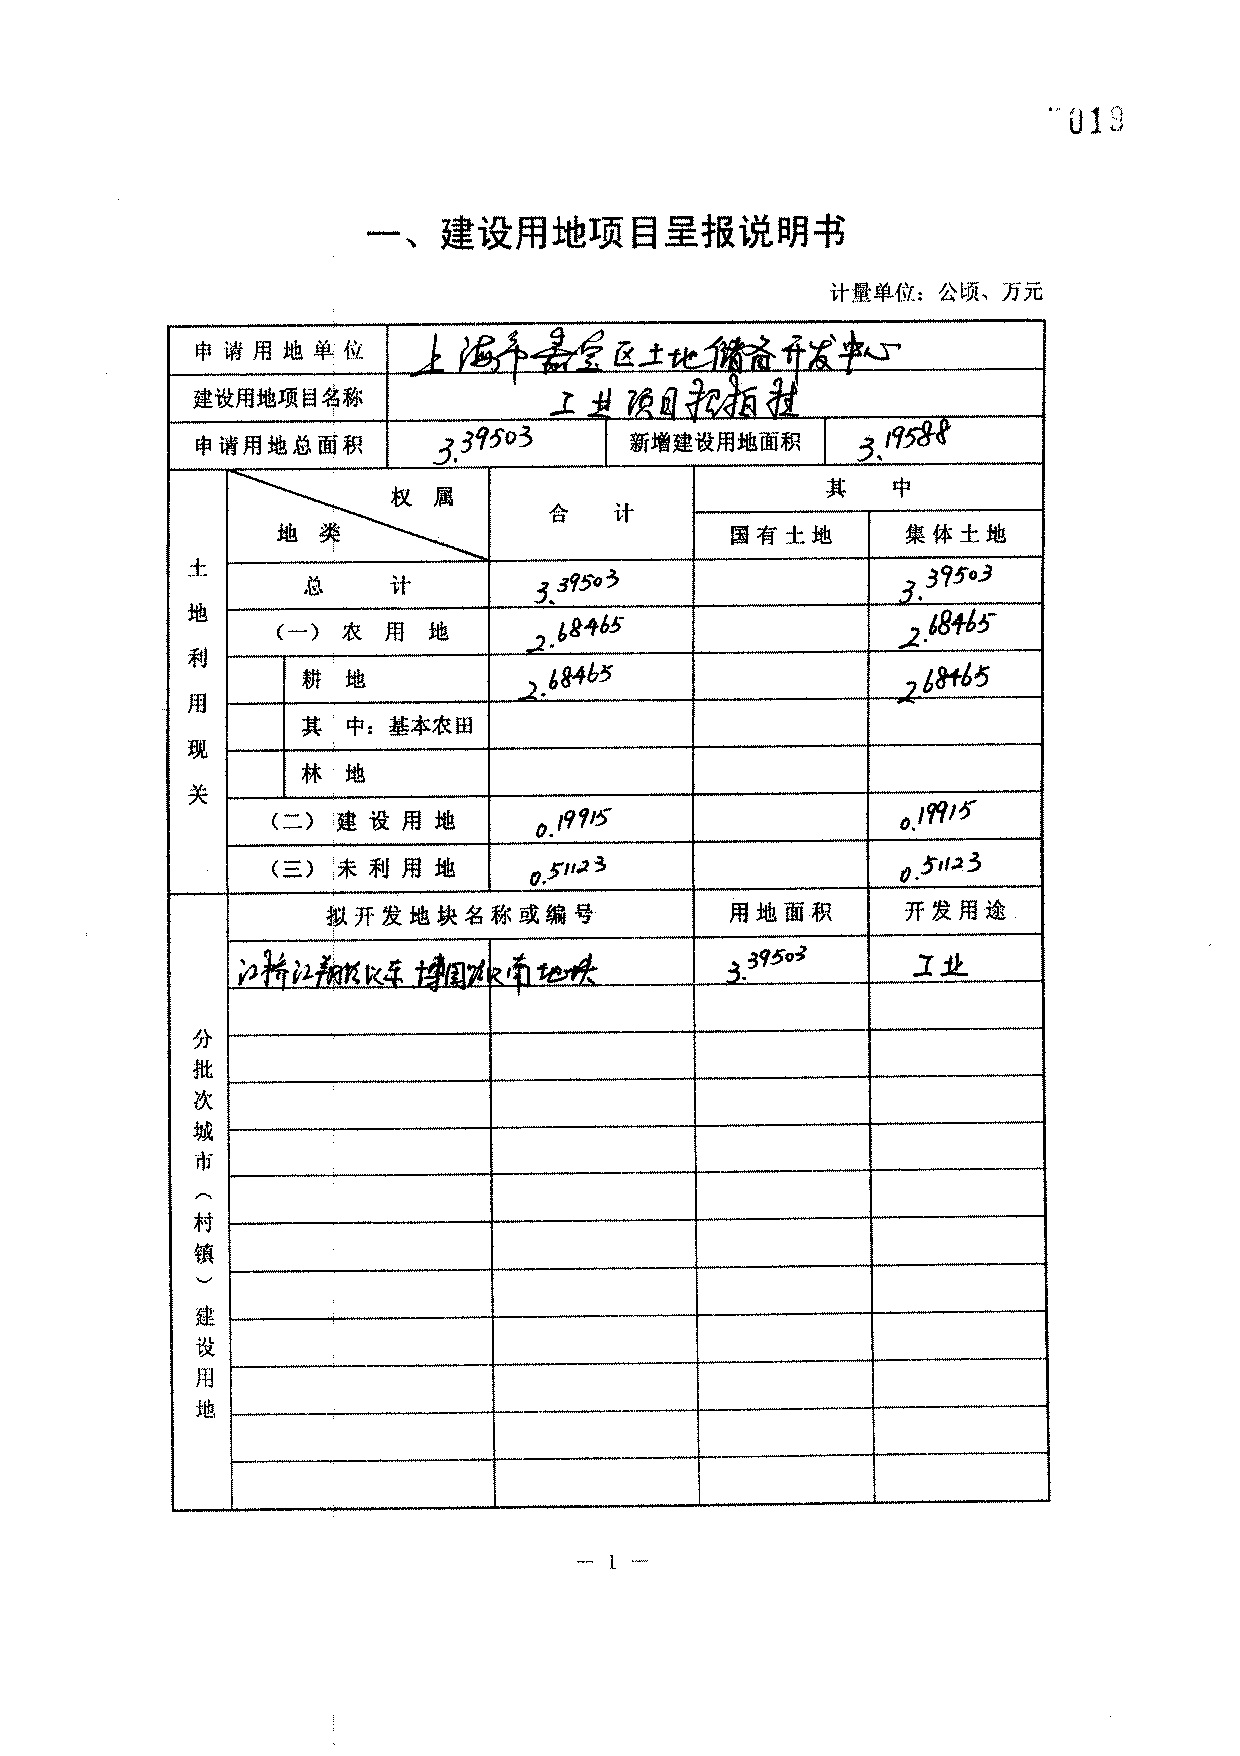 019
一、建设用地项目呈报说明书
计量单位：公顷、万元
申请用地单位 上海市嘉定区土地储备开发中心
建设用地项目名称 工业项目
申请用地总面积 3.39503 新增建设用地面积 3.19588
权属 地类 合计 其中
国有土地 集体土地
土地利用现关
总计 3.39503 3.39503
（一）农用地 2.68465 2.68465
耕地 2.68465 2.68465
其中：基本农田
林地
（二）建设用地 0.19915 0.19915
（三）未利用地 0.51123 0.51123
拟开发地块名称或编号 用地面积 开发用途
江桥江翔路以东博园路以南地块 3.39503 工业
分批次城市（村镇）建设用地
— 1 —